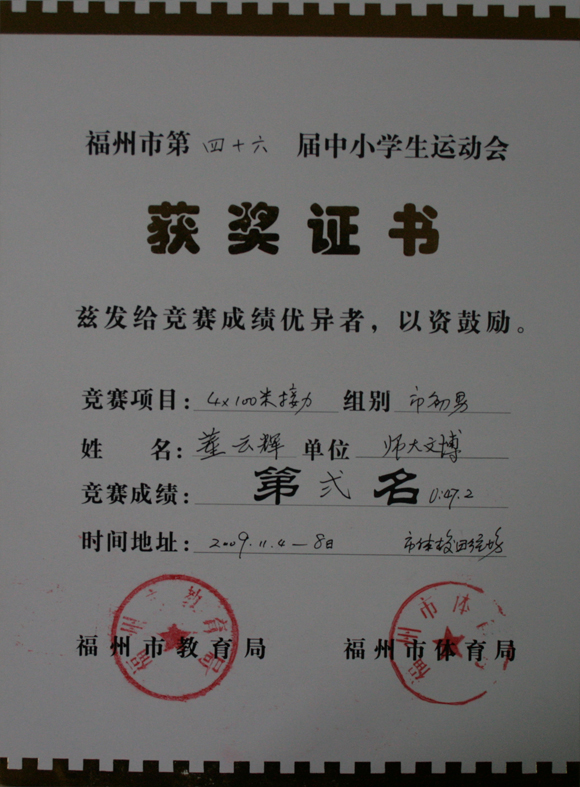 福州市第四十六届中小学生运动会
获奖证书
兹发给竞赛成绩优异者，以资鼓励。
竞赛项目：4×100米接力 组别 市初男
姓 名：董云辉 单位 师大文博
竞赛成绩：第弍名 0:47.2
时间地址：2009.11.4—8日 市体校田径场
福州市教育局 福州市体育局
福州市教育局
福州市体